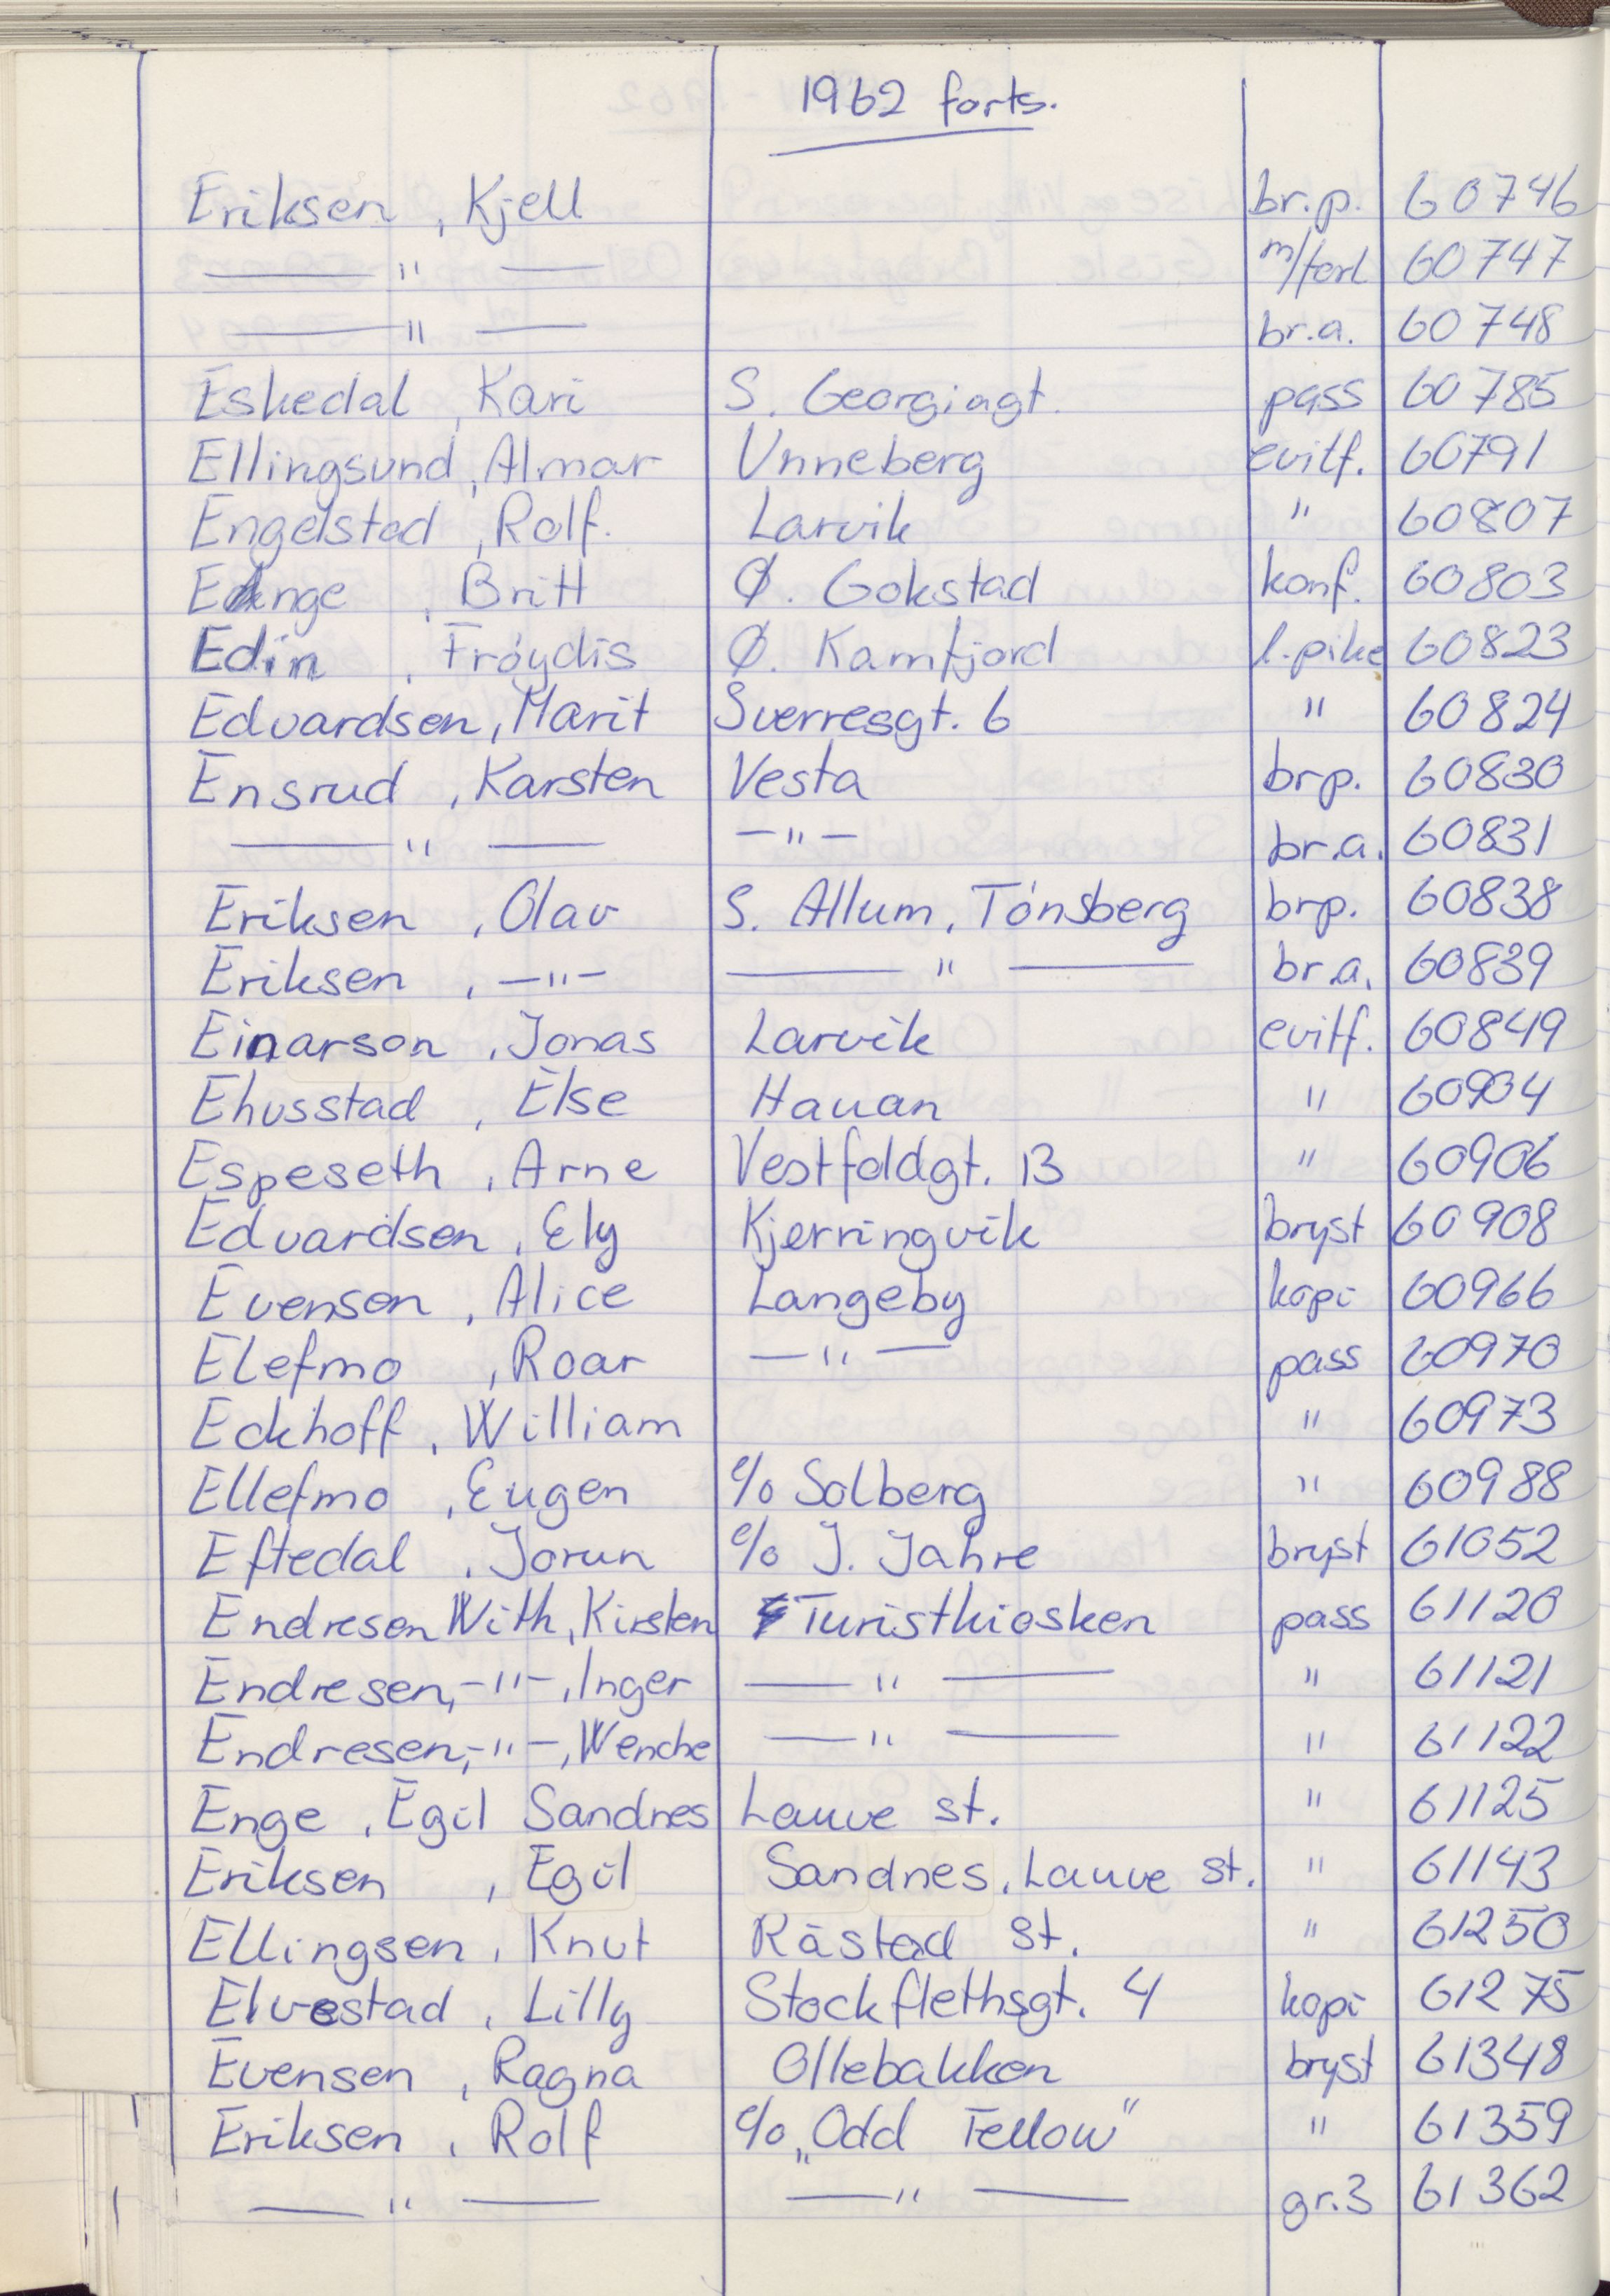 1962 forts.
Eriksen , Kjell br.p. 60746
—— " —— m/forl 60747
—— " —— br.a. 60748
Eskedal , Kari S. Georgiagt. pass 60785
Ellingsund , Almar Unneberg evitf. 60791
Engelstad , Rolf. Larvik " 60807
Enge , Britt Ø. Gokstad konf. 60803
Edin , Frøydis Ø. Kamfjord l.pike 60823
Edvardsen , Marit Sverresgt. 6 " 60824
Ensrud , Karsten Vesta brp. 60830
—— " —— — " — br.a. 60831
Eriksen , Olav S. Allum, Tønsberg brp. 60838
Eriksen , — " — —— " —— br.a. 60839
Einarson , Jonas Larvik evitf. 60849
Ehusstad , Else Hauan " 60904
Espeseth , Arne Vestfoldgt. 13 " 60906
Edvardsen , Ely Kjerringvik bryst 60908
Evensen , Alice Langeby kopi 60966
Elefmo , Roar — " — pass 60970
Eckhoff , William " 60973
Ellefmo , Eugen c/o Solberg " 60988
Eftedal , Jorun c/o J. Jahre bryst 61052
Endresen With, Kirsten Turistkiosken pass 61120
Endresen, — " —, Inger —— " —— " 61121
Endresen, — " —, Wenche —— " —— " 61122
Enge , Egil Sandnes Lauve st. " 61125
Eriksen , Egil Sandnes, Lauve st. " 61143
Ellingsen , Knut Råstad st. " 61250
Elvestad , Lilly Stockflethsgt. 4 kopi 61275
Evensen , Ragna Ollebakken bryst 61348
Eriksen , Rolf c/o „Odd Fellow" " 61359
—— " —— —— " —— gr.3 61362